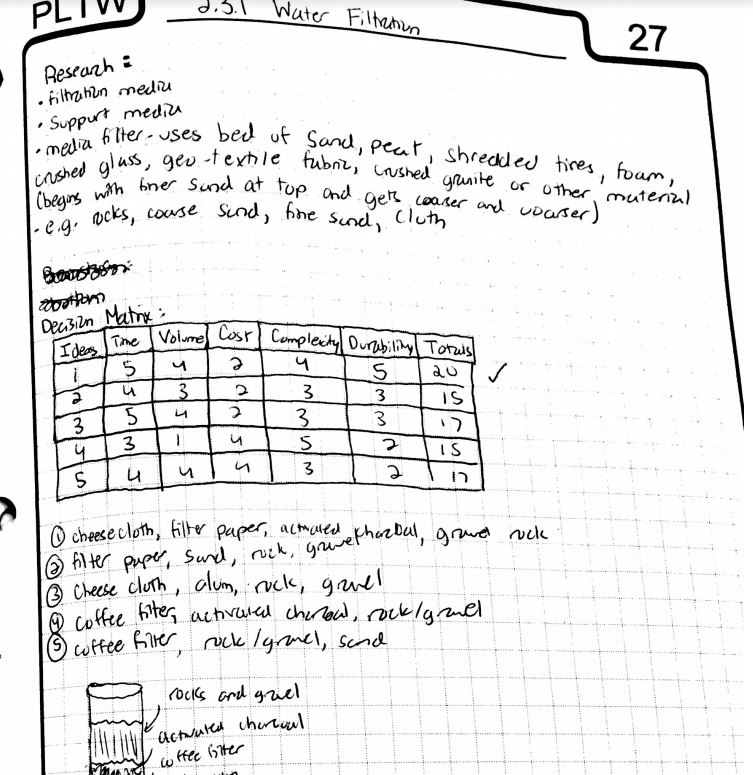 PLTW
2.3.1 Water Filtration
27
Research:
• filtration media
• Support media
• media filter - uses bed of sand, peat, shredded tires, foam,
crushed glass, geo-textile fabric, crushed granite or other material
(begins with finer sand at top and gets coarser and coarser)
- e.g. rocks, coarse sand, fine sand, cloth
Decision Matrix:
Ideas Time Volume Cost Complexity Durability Totals
1 5 4 2 4 5 20 ✓
2 4 3 2 3 3 15
3 5 4 2 3 3 17
4 3 1 4 5 2 15
5 4 4 4 3 2 17
① cheesecloth, filter paper, activated charcoal, gravel rock
② filter paper, sand, rock, gravel
③ Cheese cloth, alum, rock, gravel
④ coffee filter, activated charcoal, rock/gravel
⑤ coffee filter, rock/gravel, sand
rocks and gravel
activated charcoal
coffee filter